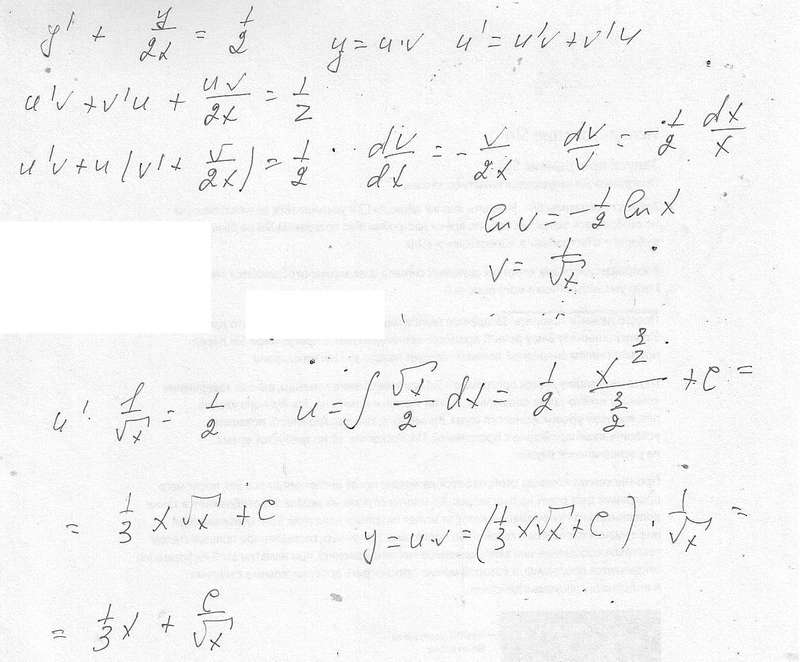 y' + y/2x = 1/2   y = u·v   u' = u'v + v'u
u'v + v'u + uv/2x = 1/2
u'v + u(v' + v/2x) = 1/2   dv/dx = - v/2x   dv/v = - 1/2 dx/x
ln v = - 1/2 ln x
v = 1/√x
u' · 1/√x = 1/2   u = ∫ √x/2 dx = 1/2 x^(3/2)/(3/2) + c =
= 1/3 x√x + c   y = u·v = (1/3 x√x + c) · 1/√x =
= 1/3 x + c/√x